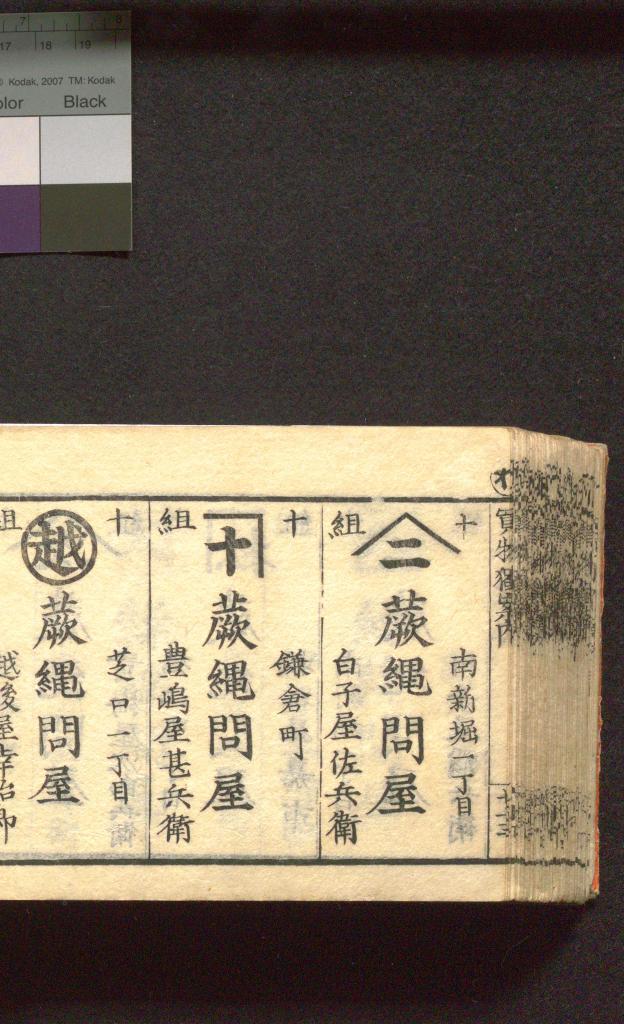 7 8
17 18 19
© Kodak, 2007 TM: Kodak
olor Black
買物獨案内
十三
十
組
二
南新堀一丁目
蕨縄問屋
白子屋佐兵衛
十
組
十
鎌倉町
蕨縄問屋
豊嶋屋甚兵衛
十
組
越
芝口一丁目
蕨縄問屋
越後屋幸治郎